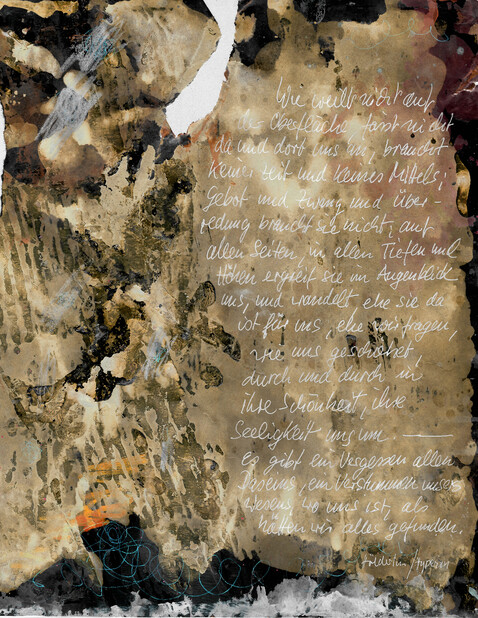 Sie weilt nicht auf
der Oberfläche, fasst nicht
da und dort uns an, braucht
keiner Zeit und keines Mittels;
Gebot und Zwang und Über-
redung braucht sie nicht, auf
allen Seiten, in allen Tiefen und
Höhen ergreift sie im Augenblick
uns, und wandelt, ehe sie da
ist für uns, ehe wir fragen,
wie uns geschiehet,
durch und durch in
ihre Schönheit, ihre
Seeligkeit uns um ——
Es gibt ein Vergessen allen
Daseins, ein Verstummen unseres
Wesens, wo uns ist, als
hätten wir alles gefunden.
Hölderlin/Hyperion